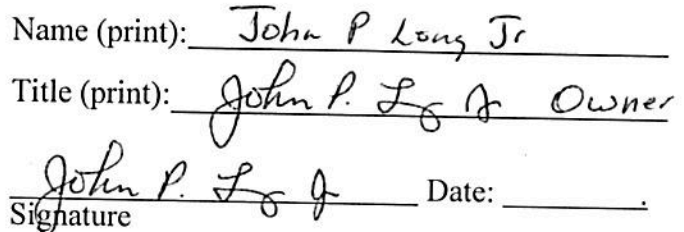 Name (print): John P Long Jr
Title (print): John P. Long Jr Owner
John P. Long Jr Date: .
Signature